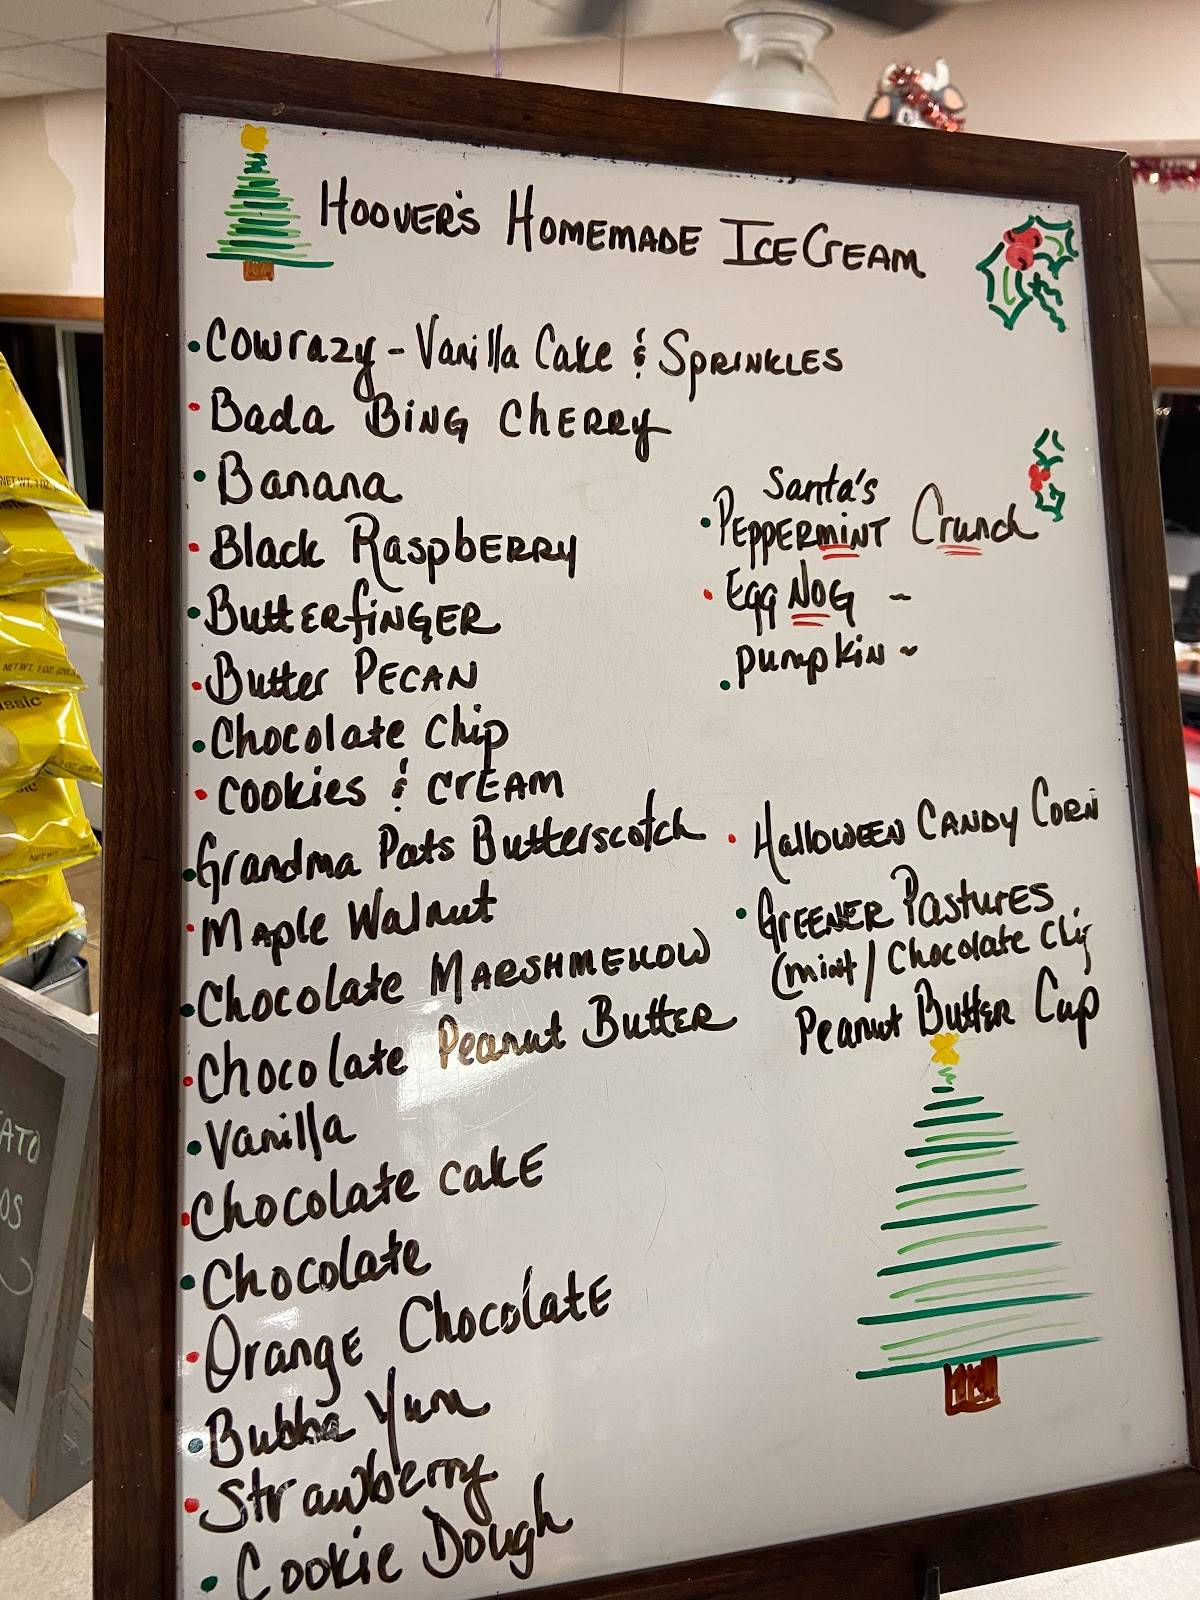 Hoover's Homemade Ice Cream
Cowrazy - Vanilla Cake & Sprinkles
Bada Bing Cherry
Banana
Black Raspberry
Butterfinger
Butter Pecan
Chocolate Chip
Cookies & Cream
Grandma Pats Butterscotch
Maple Walnut
Chocolate Marshmellow
Chocolate Peanut Butter
Vanilla
Chocolate Cake
Chocolate
Orange Chocolate
Bubba Yum
Strawberry
Cookie Dough
Santa's
Peppermint Crunch
Egg Nog ~
Pumpkin ~
Halloween Candy Corn
Greener Pastures
(mint / Chocolate Chip
Peanut Butter Cup
NET WT. 1 OZ.
NET WT. 1 OZ.
ssic
ATO
OS